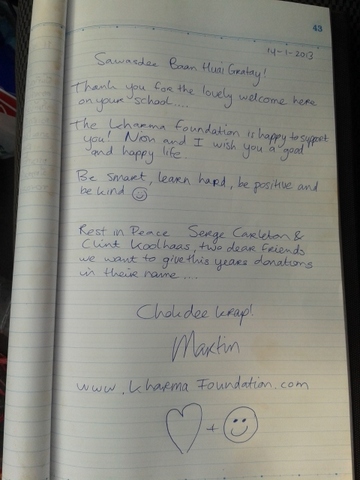 43
14-1-2013
Sawasdee Baan Huai Gratay!
Thank you for the lovely welcome here
on your school....
The Kharma Foundation is happy to support
you! Nion and I wish you a good
and happy life.
Be smart, learn hard, be positive and
be kind ☺
Rest in Peace Serge Carleton &
Clint Koolhaas, two dear friends
we want to give this years donations
in their name...
Chokdee krap!
Martin
www.Kharma Foundation.com
+